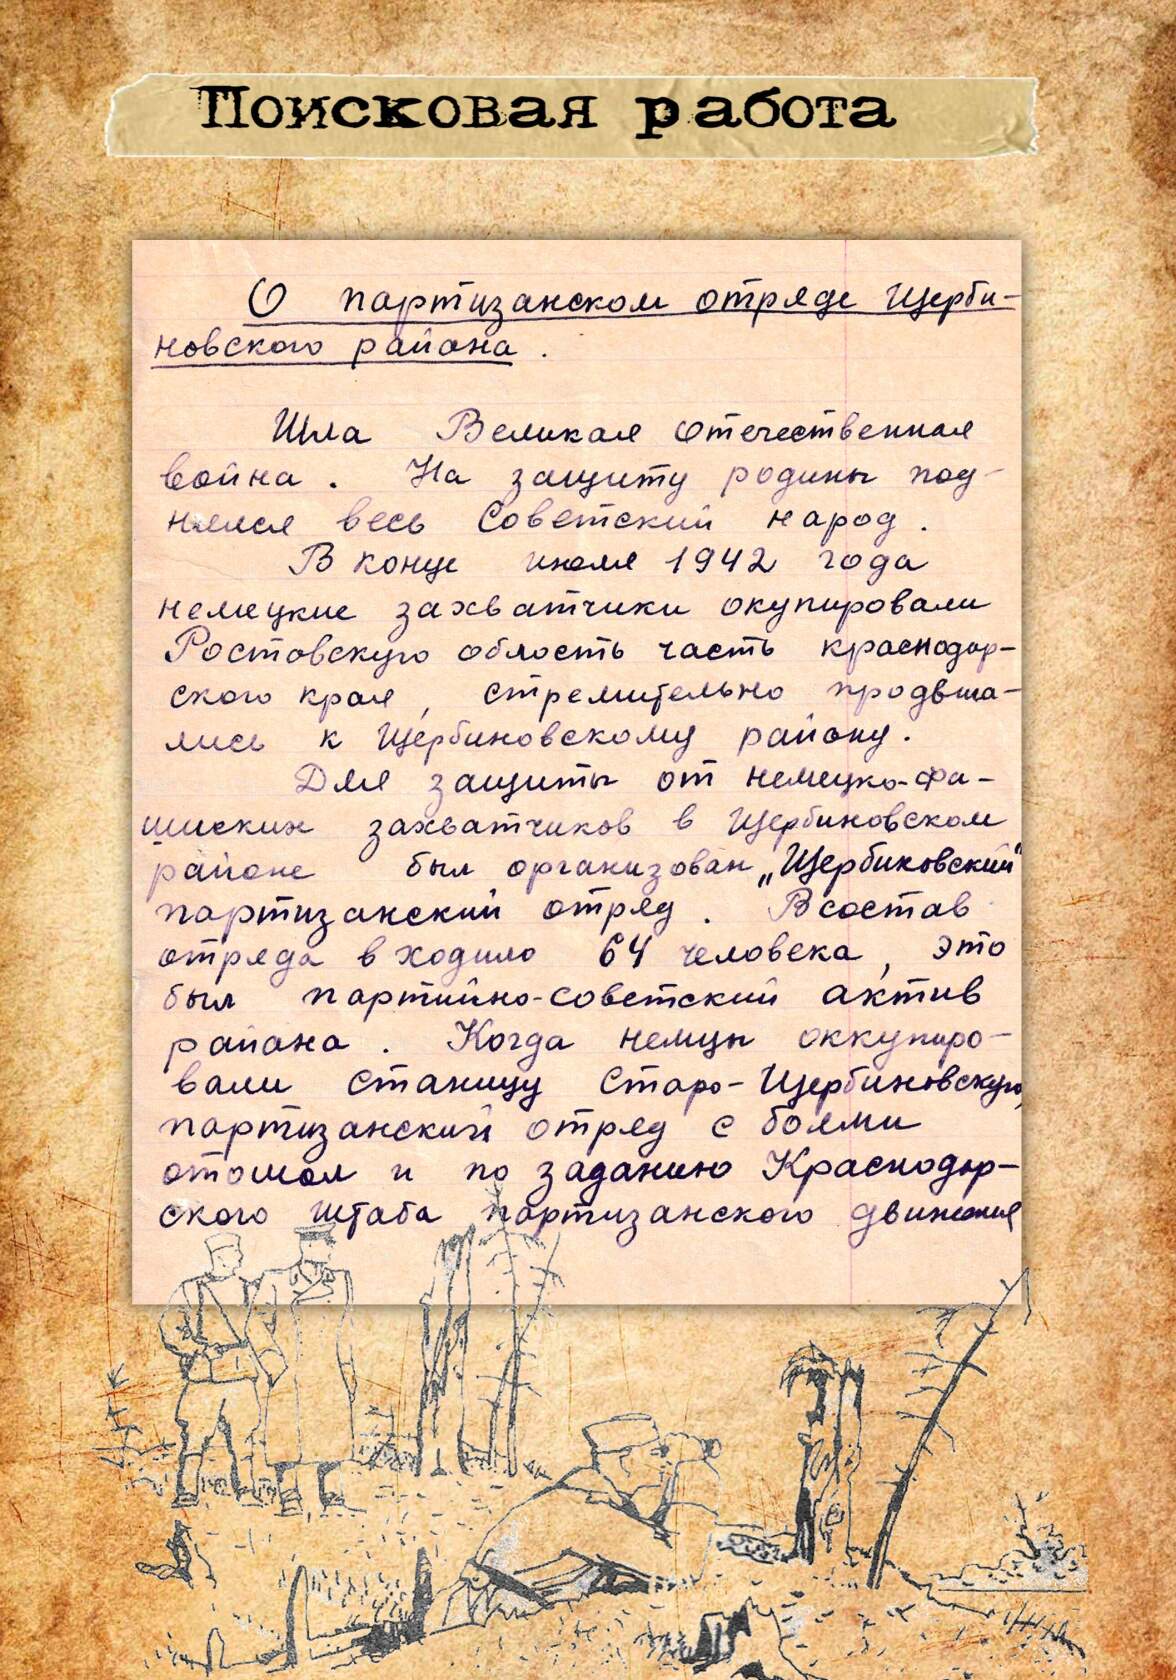 Поисковая работа
О партизанском отряде Щерби-
новского района.
Шла Великая Отечественная
война. На защиту родины под-
нялся весь Советский народ.
В конце июля 1942 года
немецкие захватчики окупировали
Ростовскую область часть краснодар-
ского края, стремительно продвига-
лись к Щербиновскому району.
Для защиты от немецко-фа-
шиских захватчиков в Щербиновском
районе был организован „Щербиновский"
партизанский отряд. В состав
отряда входило 64 человека, это
был партийно-советский актив
района. Когда немцы оккупиро-
вали станицу Старо-Щербиновскую,
партизанский отряд с боями
отошол и по заданию Краснодар-
ского штаба партизанского движения